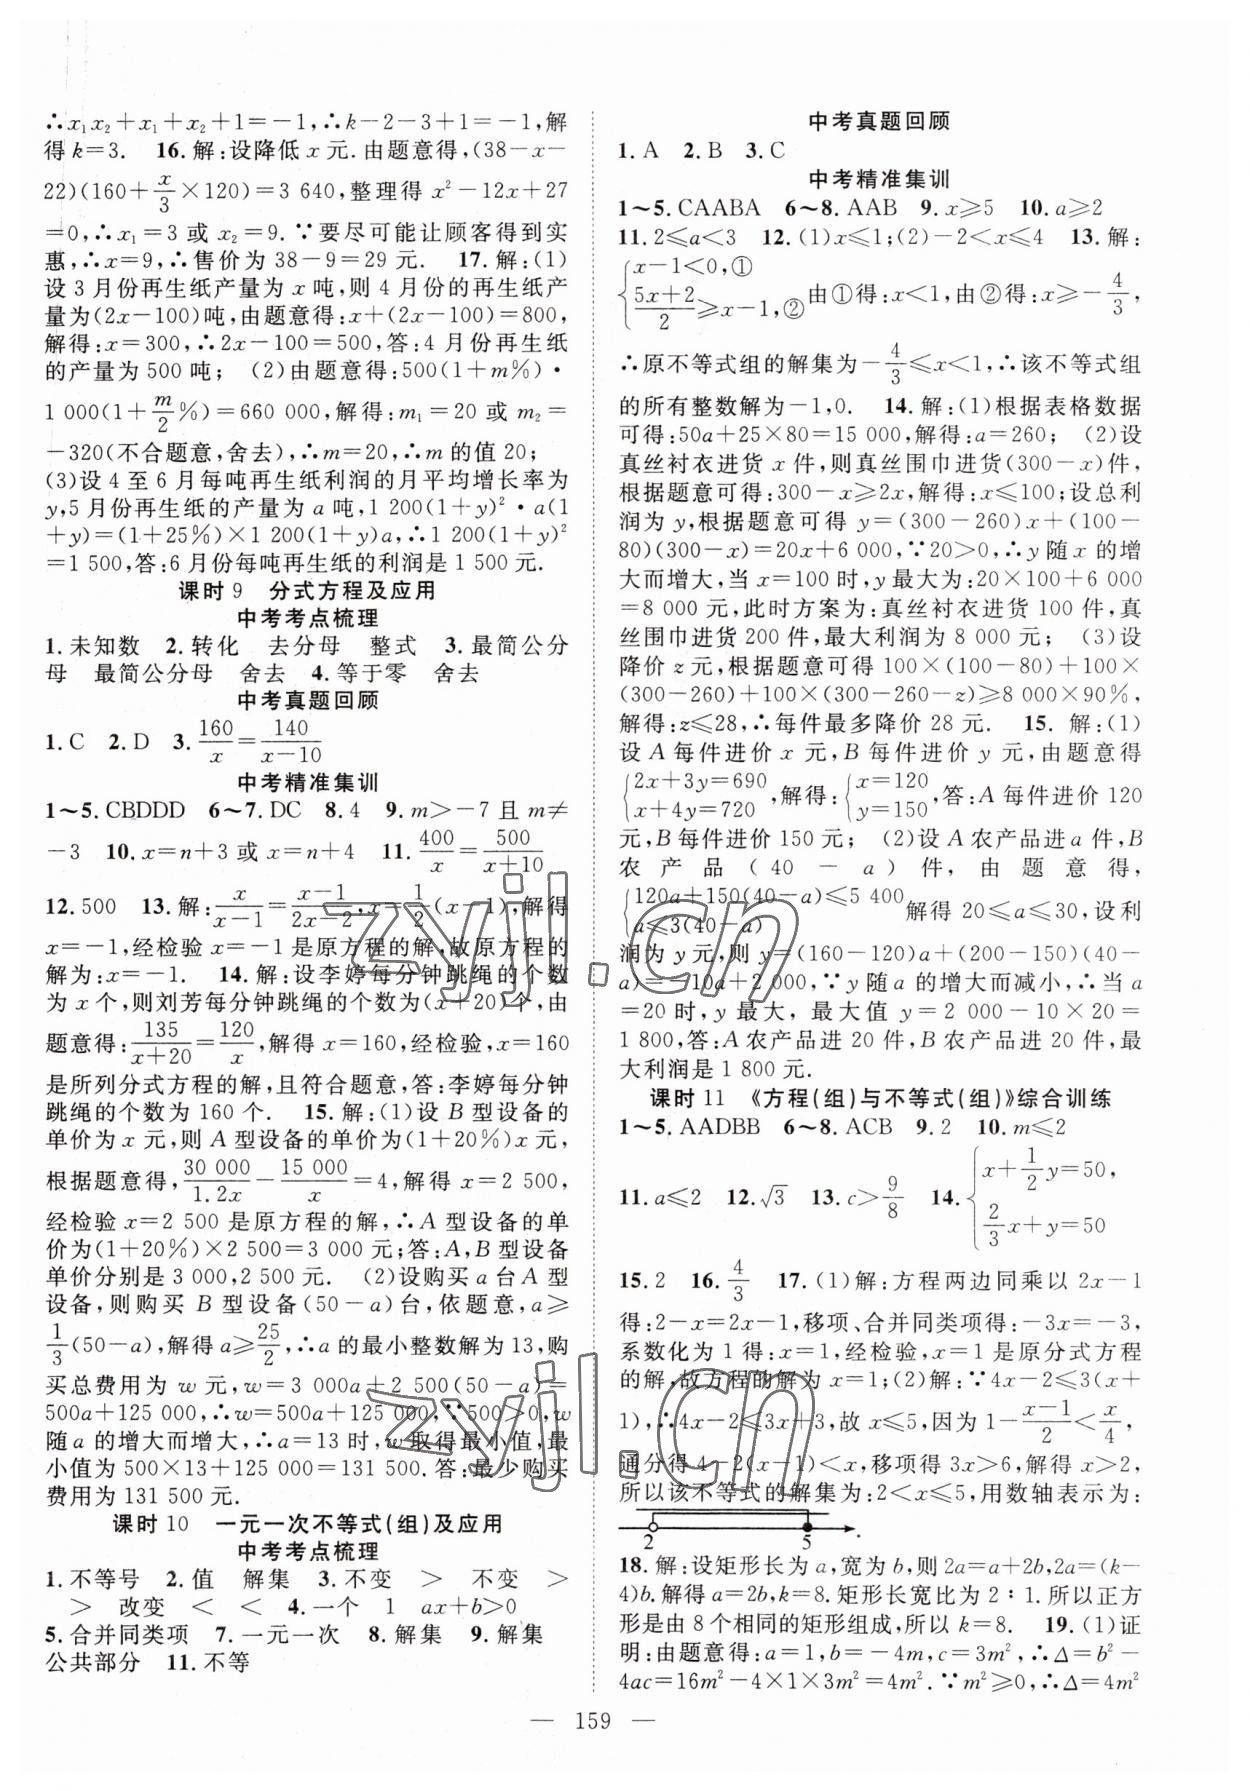 ∴x₁x₂+x₁+x₂+1=-1,∴k-2-3+1=-1,解
得k=3. 16.解:设降低x元.由题意得,(38-x-
22)(160+x/3×120)=3 640,整理得x²-12x+27
=0,∴x₁=3或x₂=9.∵要尽可能让顾客得到实
惠,∴x=9,∴售价为38-9=29元. 17.解:(1)
设3月份再生纸产量为x吨,则4月份的再生纸产
量为(2x-100)吨,由题意得:x+(2x-100)=800,
解得:x=300,∴2x-100=500,答:4月份再生纸
的产量为500吨; (2)由题意得:500(1+m%)·
1 000(1+m/2%)=660 000,解得:m₁=20或m₂=
-320(不合题意,舍去),∴m=20,∴m的值20;
(3)设4至6月每吨再生纸利润的月平均增长率为
y,5月份再生纸的产量为a吨,1 200(1+y)²·a(1
+y)=(1+25%)×1 200(1+y)a,∴1 200(1+y)²
=1 500,答:6月份每吨再生纸的利润是1 500元.
课时9 分式方程及应用
中考考点梳理
1.未知数 2.转化 去分母 整式 3.最简公分
母 最简公分母 舍去 4.等于零 舍去
中考真题回顾
1.C 2.D 3.160/x=140/(x-10)
中考精准集训
1~5.CBDDD 6~7.DC 8.4 9.m>-7且m≠
-3 10.x=n+3或x=n+4 11.400/x=500/(x+10)
12.500 13.解:x/(x-1)=(x-1)/(2x-2),x=1/2(x-1),解得
x=-1,经检验x=-1是原方程的解,故原方程的
解为:x=-1. 14.解:设李婷每分钟跳绳的个数
为x个,则刘芳每分钟跳绳的个数为(x+20)个,由
题意得:135/(x+20)=120/x,解得x=160,经检验,x=160
是所列分式方程的解,且符合题意,答:李婷每分钟
跳绳的个数为160个. 15.解:(1)设B型设备的
单价为x元,则A型设备的单价为(1+20%)x元,
根据题意得,30 000/1.2x-15 000/x=4,解得x=2 500,
经检验x=2 500是原方程的解,∴A型设备的单
价为(1+20%)×2 500=3 000元;答:A,B型设备
单价分别是3 000,2 500元. (2)设购买a台A型
设备,则购买B型设备(50-a)台,依题意,a≥
1/3(50-a),解得a≥25/2,∴a的最小整数解为13,购
买总费用为w元,w=3 000a+2 500(50-a)=
500a+125 000,∴w=500a+125 000,∵500>0,w
随a的增大而增大,∴a=13时,w取得最小值,最
小值为500×13+125 000=131 500.答:最少购买
费用为131 500元.
课时10 一元一次不等式(组)及应用
中考考点梳理
1.不等号 2.值 解集 3.不变 > 不变 >
> 改变 < < 4.一个 1 ax+b>0
5.合并同类项 7.一元一次 8.解集 9.解集
公共部分 11.不等
中考真题回顾
1.A 2.B 3.C
中考精准集训
1~5.CAABA 6~8.AAB 9.x≥5 10.a≥2
11.2≤a<3 12.(1)x≤1;(2)-2<x≤4 13.解:
{x-1<0,①
(5x+2)/2≥x-1,②由①得:x<1,由②得:x≥-4/3,
∴原不等式组的解集为-4/3≤x<1,∴该不等式组
的所有整数解为-1,0. 14.解:(1)根据表格数据
可得:50a+25×80=15 000,解得:a=260; (2)设
真丝衬衣进货x件,则真丝围巾进货(300-x)件,
根据题意可得:300-x≥2x,解得:x≤100;设总利
润为y,根据题意可得y=(300-260)x+(100-
80)(300-x)=20x+6 000,∵20>0,∴y随x的增
大而增大,当x=100时,y最大为:20×100+6 000
=8 000元,此时方案为:真丝衬衣进货100件,真
丝围巾进货200件,最大利润为8 000元; (3)设
降价z元,根据题意可得100×(100-80)+100×
(300-260)+100×(300-260-z)≥8 000×90%,
解得:z≤28,∴每件最多降价28元. 15.解:(1)
设A每件进价x元,B每件进价y元,由题意得
{2x+3y=690
x+4y=720,解得:{x=120
y=150,答:A每件进价120
元,B每件进价150元; (2)设A农产品进a件,B
农产品(40-a)件,由题意得,
{120a+150(40-a)≤5 400
a≤3(40-a)解得20≤a≤30,设利
润为y元,则y=(160-120)a+(200-150)(40-
a)=-10a+2 000,∵y随a的增大而减小,∴当a
=20时,y最大,最大值y=2 000-10×20=
1 800,答:A农产品进20件,B农产品进20件,最
大利润是1 800元.
课时11 《方程(组)与不等式(组)》综合训练
1~5.AADBB 6~8.ACB 9.2 10.m≤2
11.a≤2 12.√3 13.c>9/8 14.{x+1/2y=50,
2/3x+y=50
15.2 16.4/3 17.(1)解:方程两边同乘以2x-1
得:2-x=2x-1,移项、合并同类项得:-3x=-3,
系数化为1得:x=1,经检验,x=1是原分式方程
的解,故方程的解为x=1;(2)解:∵4x-2≤3(x+
1),∴4x-2≤3x+3,故x≤5,因为1-(x-1)/2<x/4,
通分得4-2(x-1)<x,移项得3x>6,解得x>2,
所以该不等式的解集为:2<x≤5,用数轴表示为:
2 5 .
18.解:设矩形长为a,宽为b,则2a=a+2b,2a=(k-
4)b.解得a=2b,k=8.矩形长宽比为2∶1.所以正方
形是由8个相同的矩形组成,所以k=8. 19.(1)证
明:由题意得:a=1,b=-4m,c=3m²,∴Δ=b²-
4ac=16m²-4×1×3m²=4m².∵m²≥0,∴Δ=4m²
— 159 —
zyjl.cn